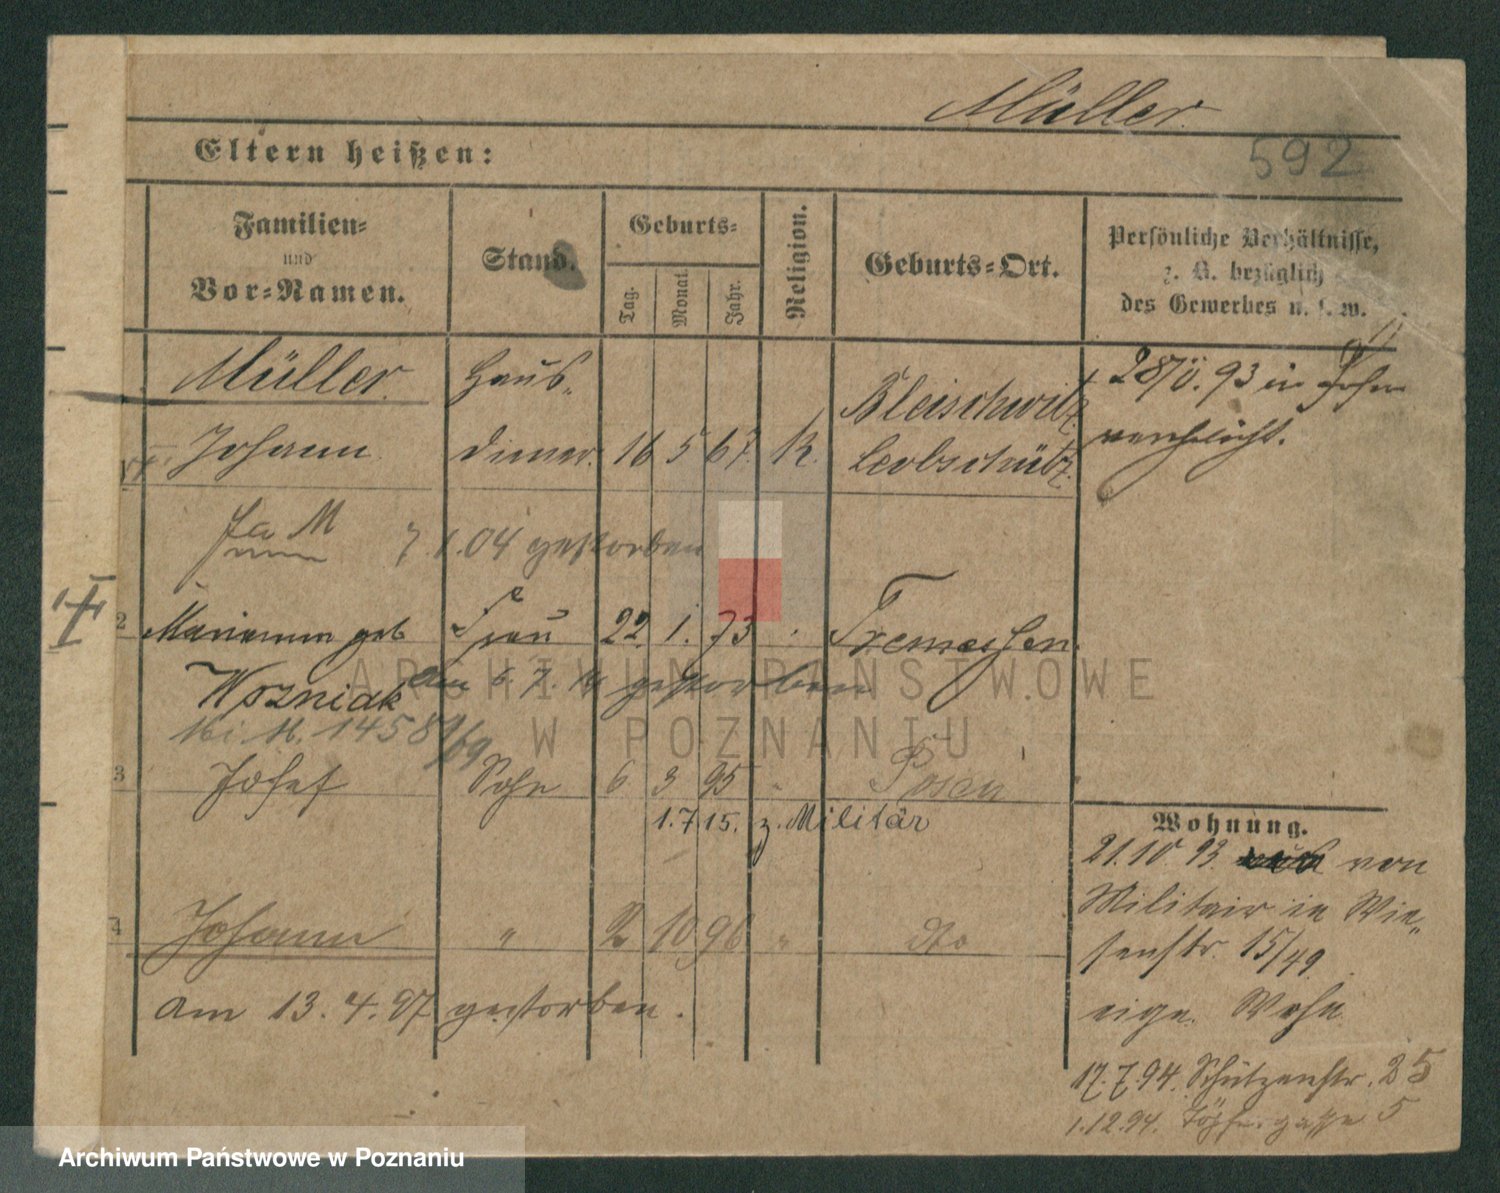 Müller.
592
Eltern heißen:
Familien- und Vor-Namen.
Stand.
Geburts-
Tag.
Monat.
Jahr.
Religion.
Geburts-Ort.
Persönliche Verhältnisse, z. B. bezüglich des Gewerbes u. s. w.
Müller. Haus- Bleischwitz 28/V. 93 in Posen
Johann diener. 16 5 67. K. Leobschütz verehelicht.
7.1.04 gestorben
2 Marianna geb Frau 22. 1. 73 Tremessen
Wozniak am 6. 7. gestorben
14581/09
3 Josef Sohn 6 3 95 " Posen
1.7.15. z. Militär
4 Johann " 2 10 96 " dto
am 13.4.97 gestorben.
Wohnung.
21.10.93. von
Militair in Wie-
senstr. 15/49
eige. Wohn
17.7.94. Schützenstr. 25
1.12.94. Töpfergasse 5
ARCHIWUM PAŃSTWOWE
W POZNANIU
Archiwum Państwowe w Poznaniu